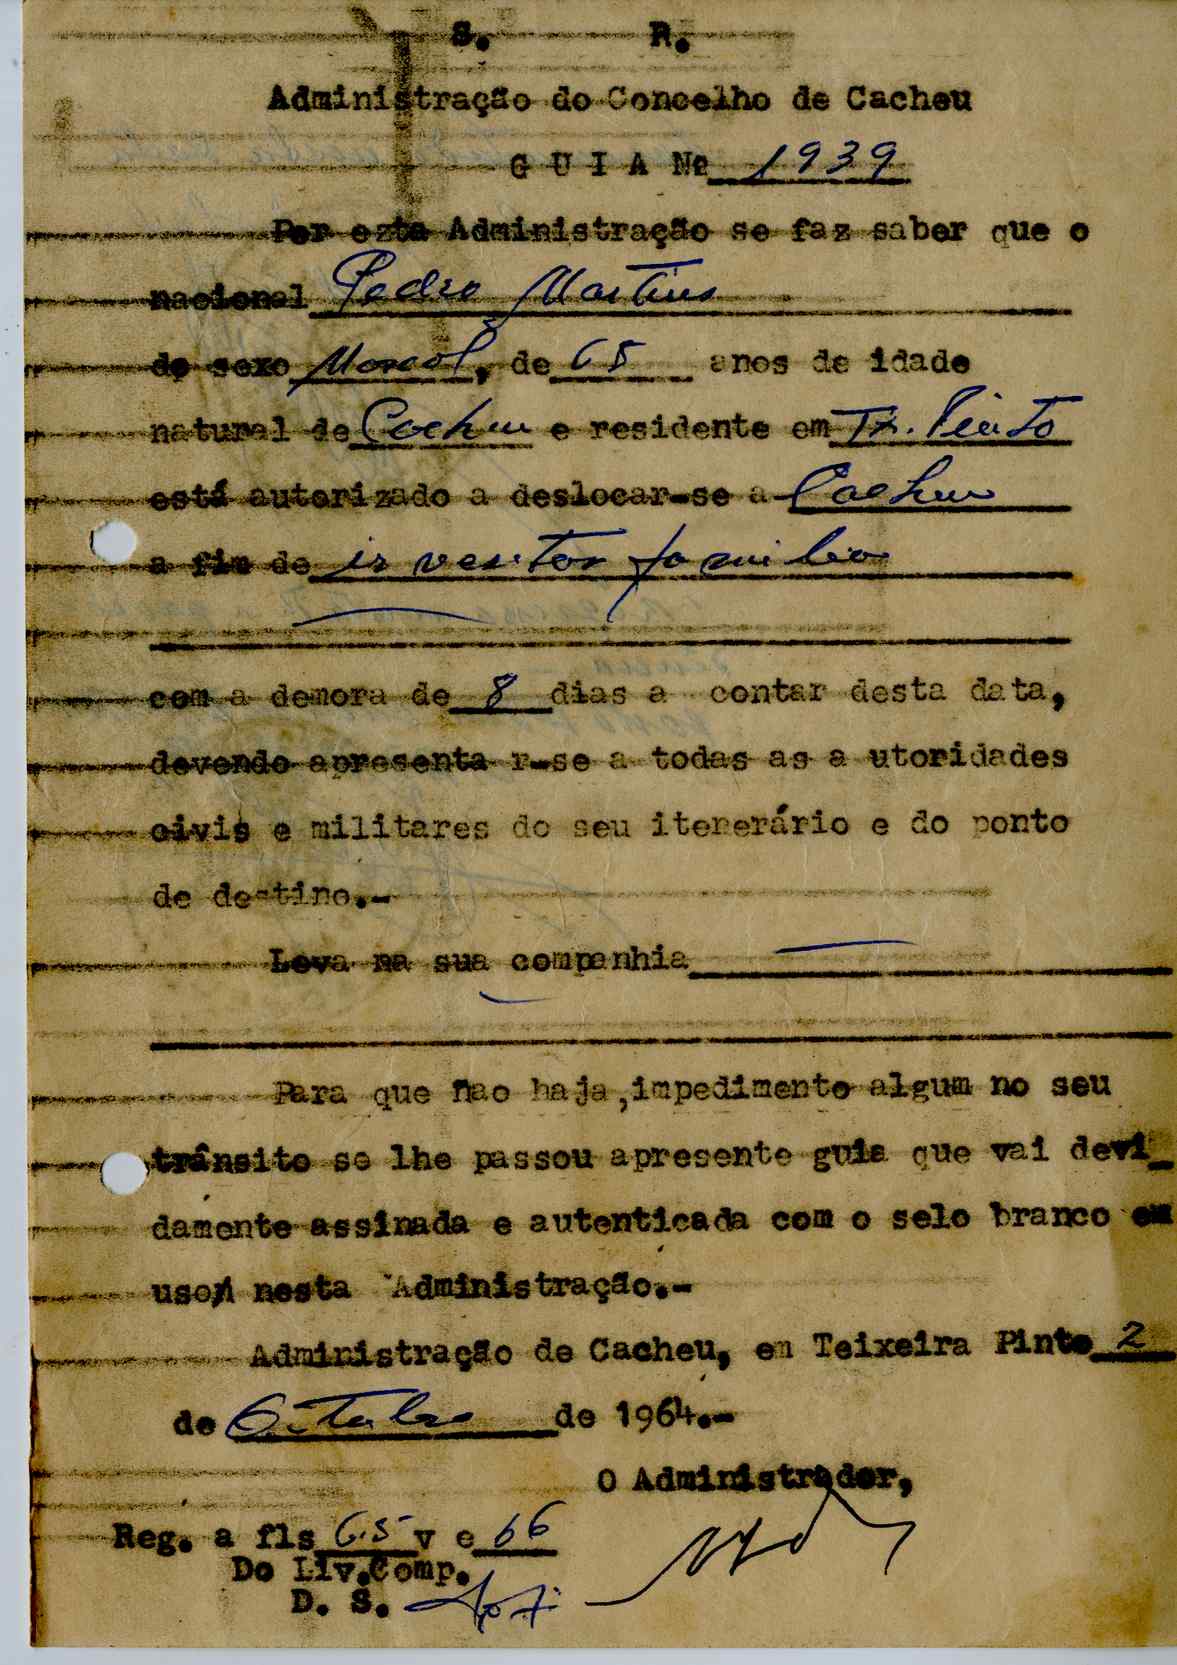 S. R.
Administração do Concelho de Cacheu
G U I A Nº 1939
Por ezta Administração se faz saber que o
nacional Pedro Martins
do sexo Mascul, de 65 anos de idade
natural de Cacheu e residente em Tx. Pinto
está autorizado a deslocar-se a Cacheu
a fim de ir vesitar familia
com a demora de 8 dias a contar desta data,
devendo apresenta r-se a todas as a utoridades
civis e militares do seu itenerário e do ponto
de destino.-
Leva na sua companhia
Para que nao haja,impedimento algum no seu
trânsito se lhe passou apresente guia que vai devi_
damente assinada e autenticada com o selo branco em
uso nesta Administração.-
Administração de Cacheu, em Teixeira Pinto 2
de Outubro de 1964.-
O Administrador,
Reg. a fls 65 v e 66
Do Liv.Comp.
D. S.